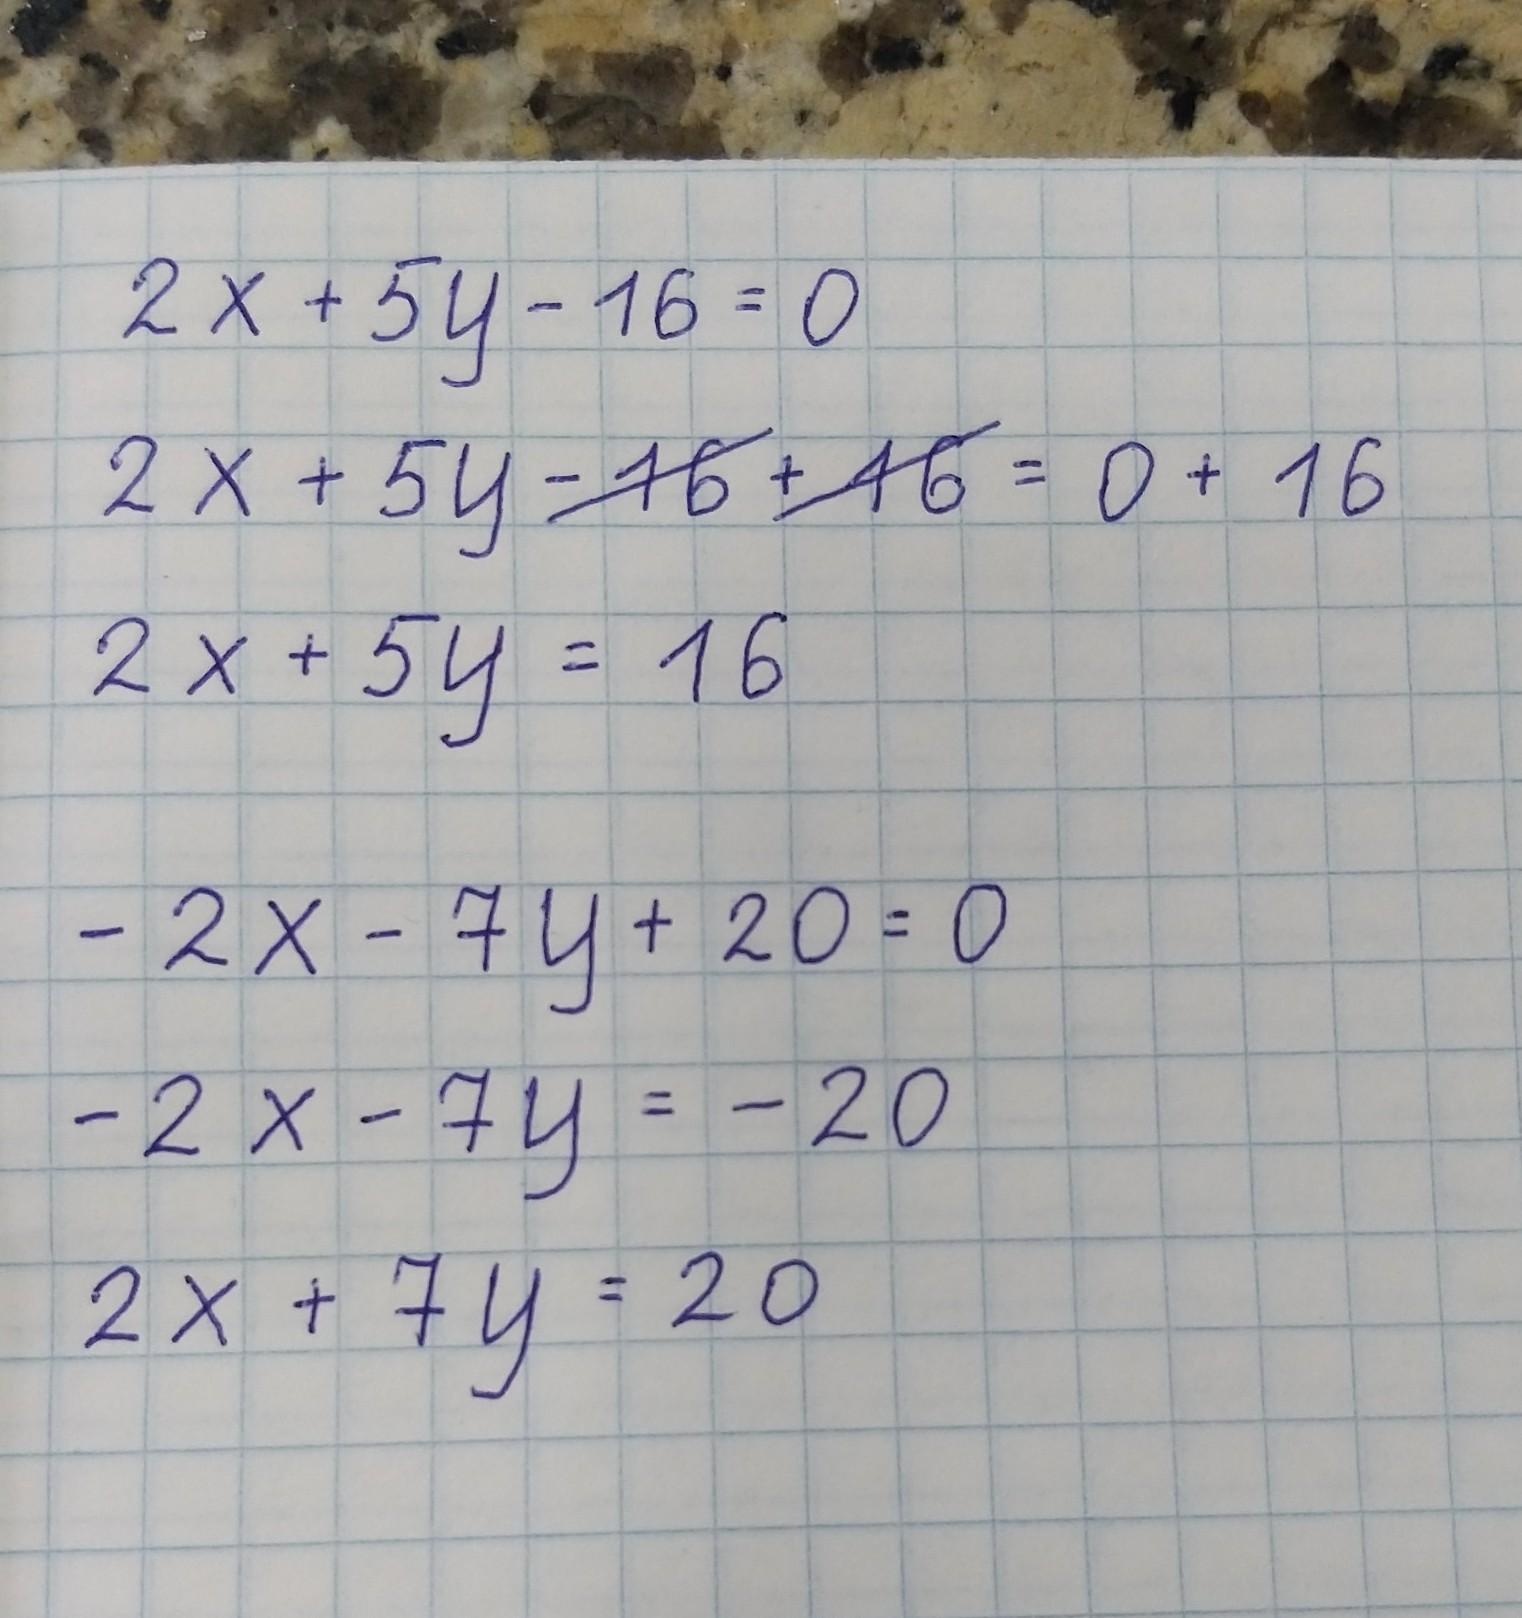 2x + 5y - 16 = 0
2x + 5y - 16 + 16 = 0 + 16
2x + 5y = 16
- 2x - 7y + 20 = 0
- 2x - 7y = - 20
2x + 7y = 20